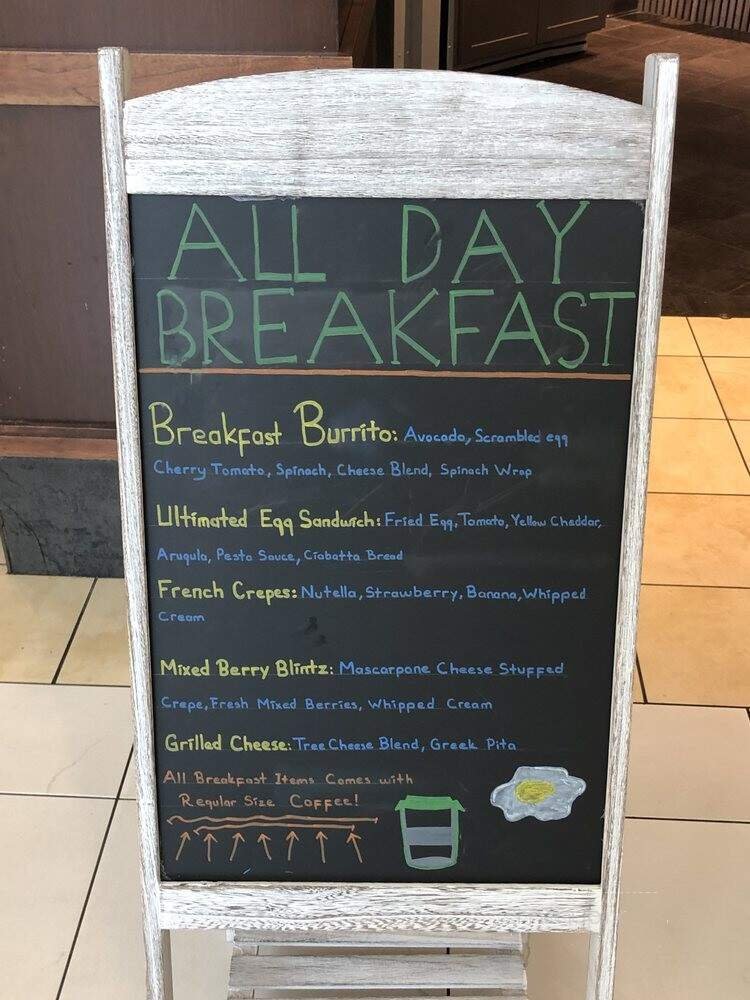 ALL DAY
BREAKFAST
Breakfast Burrito: Avocado, Scrambled egg
Cherry Tomato, Spinach, Cheese Blend, Spinach Wrap
Ultimated Egg Sandwich: Fried Egg, Tomato, Yellow Cheddar,
Arugula, Pesto Sauce, Ciabatta Bread
French Crepes: Nutella, Strawberry, Banana, Whipped
Cream
Mixed Berry Blintz: Mascarpone Cheese Stuffed
Crepe, Fresh Mixed Berries, Whipped Cream
Grilled Cheese: Tree Cheese Blend, Greek Pita
All Breakfast Items Comes with
Regular Size Coffee!